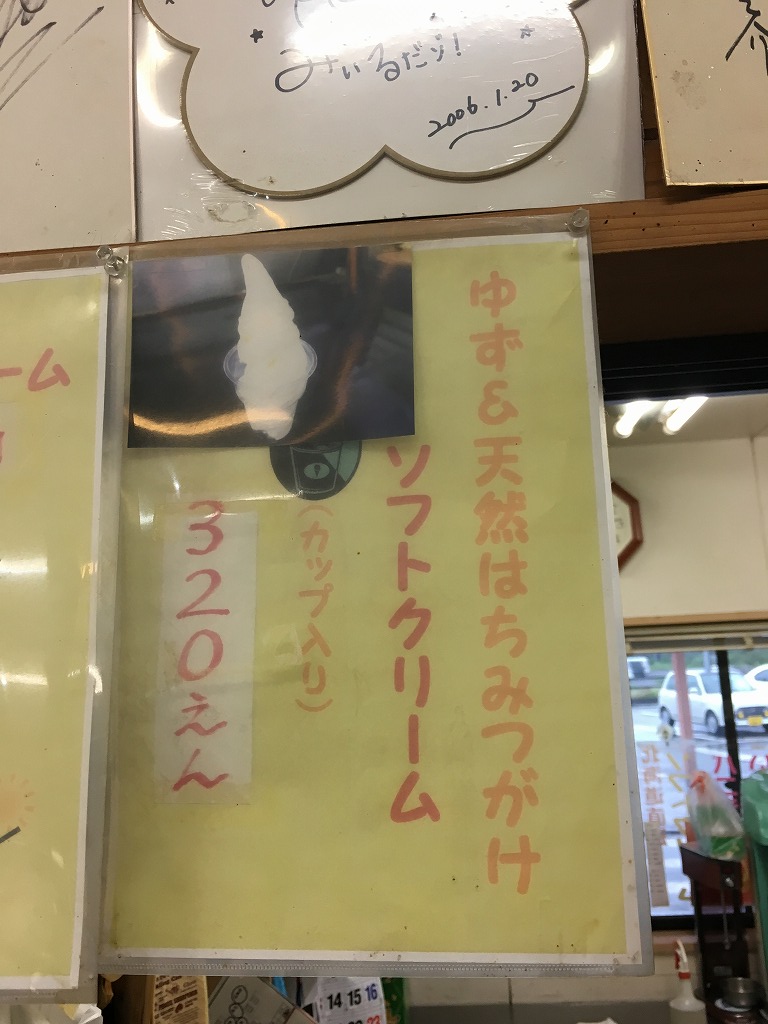 みいるだッ!
2006.1.20
ゆず&天然はちみつがけ
ソフトクリーム
(カップ入り)
320えん
ーム
北海道
14 15 16